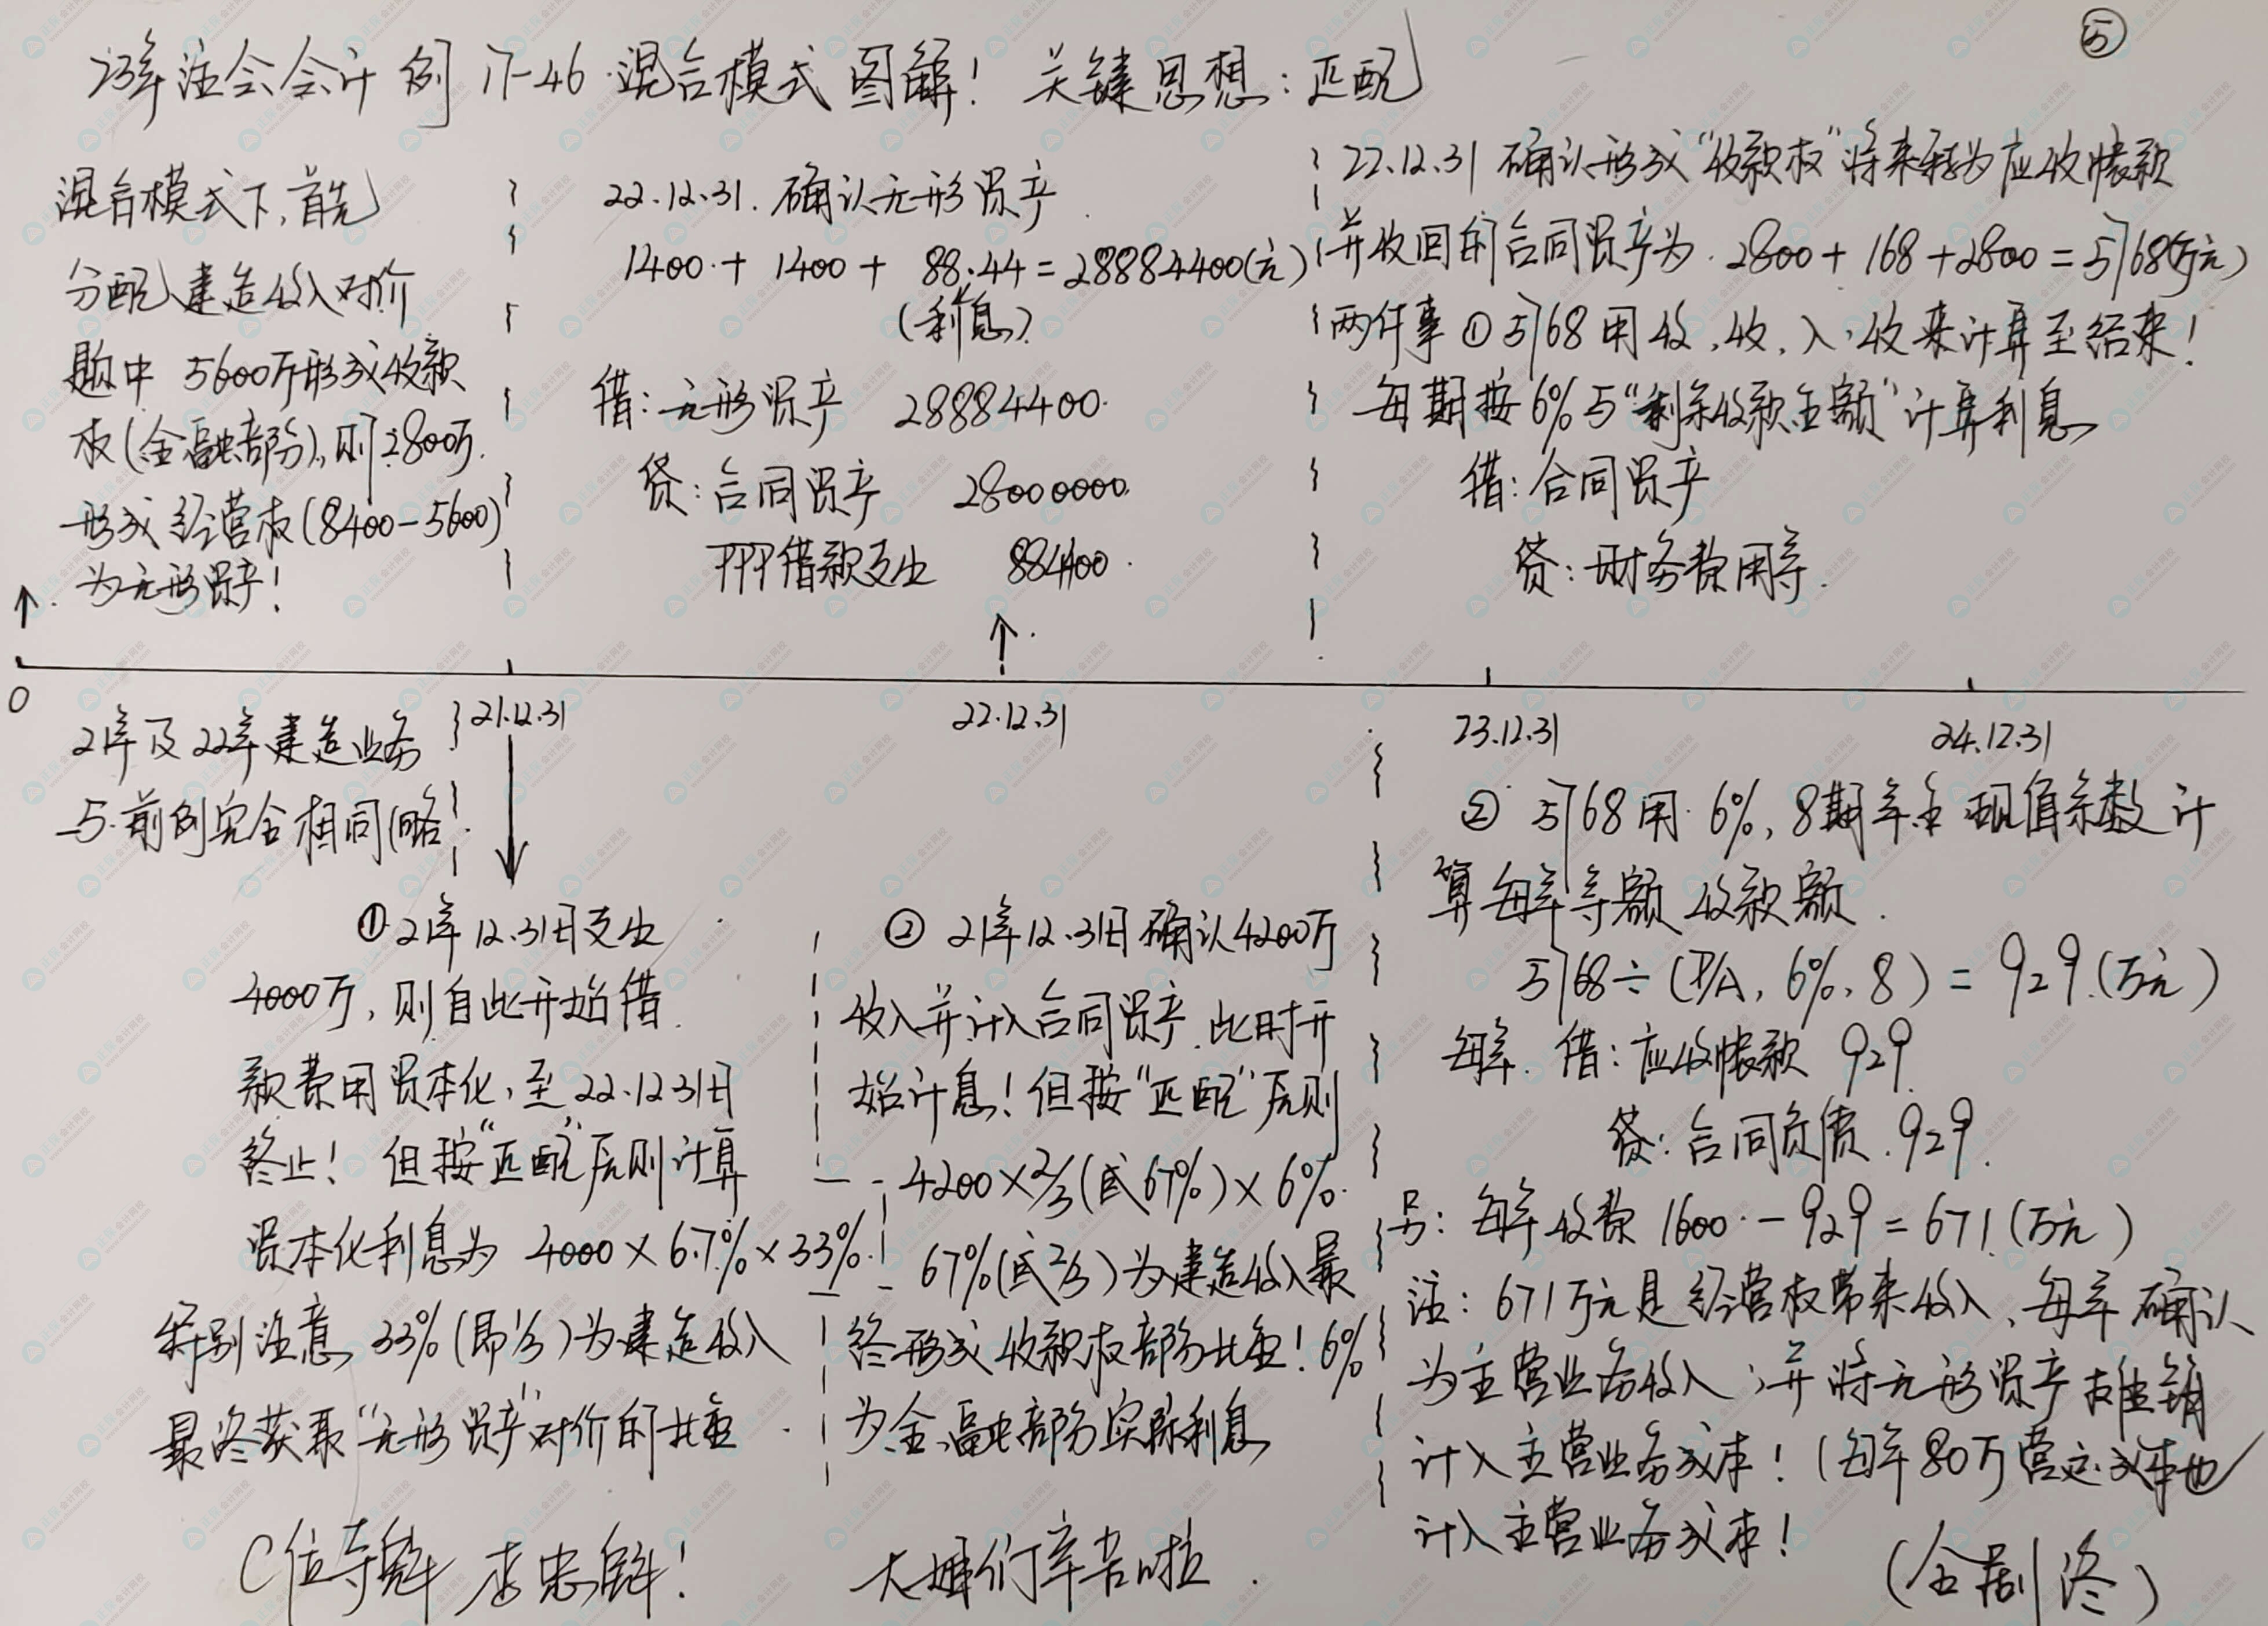 ⑤
23年注会会计 例 17-46 混合模式图解! 关键思想:匹配
混合模式下,首先
分配建造收入对价
题中 5600万形成收款
权(金融部分),则2800万
形成经营权(8400-5600)
为无形资产!
22.12.31. 确认无形资产
1400 + 1400 + 88.44 = 28884400(元)
(利息)
借:无形资产 28884400
贷:合同资产 28000000
PPP借款支出 884400
22.12.31 确认形成“收款权”将来转为应收帐款
并收回的合同资产为 2800 + 168 + 2800 = 5768(万元)
两件事 ① 5768用收,收,入,收来计算至结束!
每期按6%与“剩余收款金额”计算利息
借:合同资产
贷:财务费用等.
0
21.12.31
22.12.31
23.12.31
24.12.31
21年及22年建造业务
与前例完全相同(略
① 21年12.31日支出
4000万,则自此开始借
款费用资本化,至22.12.31日
终止! 但按“匹配”原则计算
资本化利息为 4000 × 6.7% × 33%
特别注意 33%(即1/3)为建造收入
最终获取“无形资产”对价的比重
② 21年12.31日确认4200万
收入并计入合同资产.此时开
始计息!但按“匹配”原则
4200×2/3(或67%)×6%
67%(或2/3)为建造收入最
终形成收款权部分比重!6%
为金融部分实际利息
② 5768用 6%,8期年金现值系数计
算每年等额收款额.
5768÷(P/A, 6%, 8) = 929.(万元)
每年. 借:应收帐款 929.
贷:合同负债.929.
另:每年收费 1600 - 929 = 671.(万元)
注:671万元是经营权带来收入,每年确认
为主营业务收入;并将无形资产摊销
计入主营业务成本!(每年80万营运成本也
计入主营业务成本!
C位夺魁 李忠魁!
大姐们辛苦啦.
(全剧终)